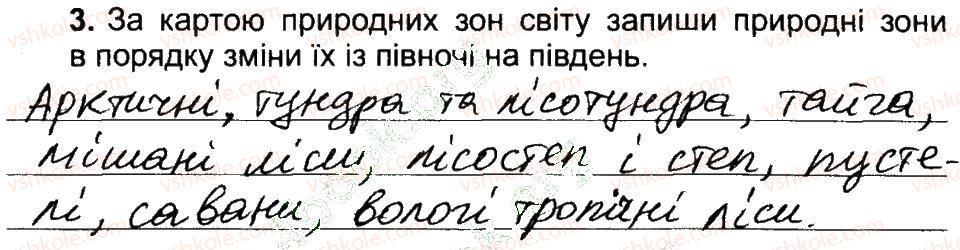 3. За картою природних зон світу запиши природні зони
в порядку зміни їх із півночі на південь.
Арктичні, тундра та лісотундра, тайга,
мішані ліси, лісостеп і степ, пусте-
лі, савани, вологі тропічні ліси.